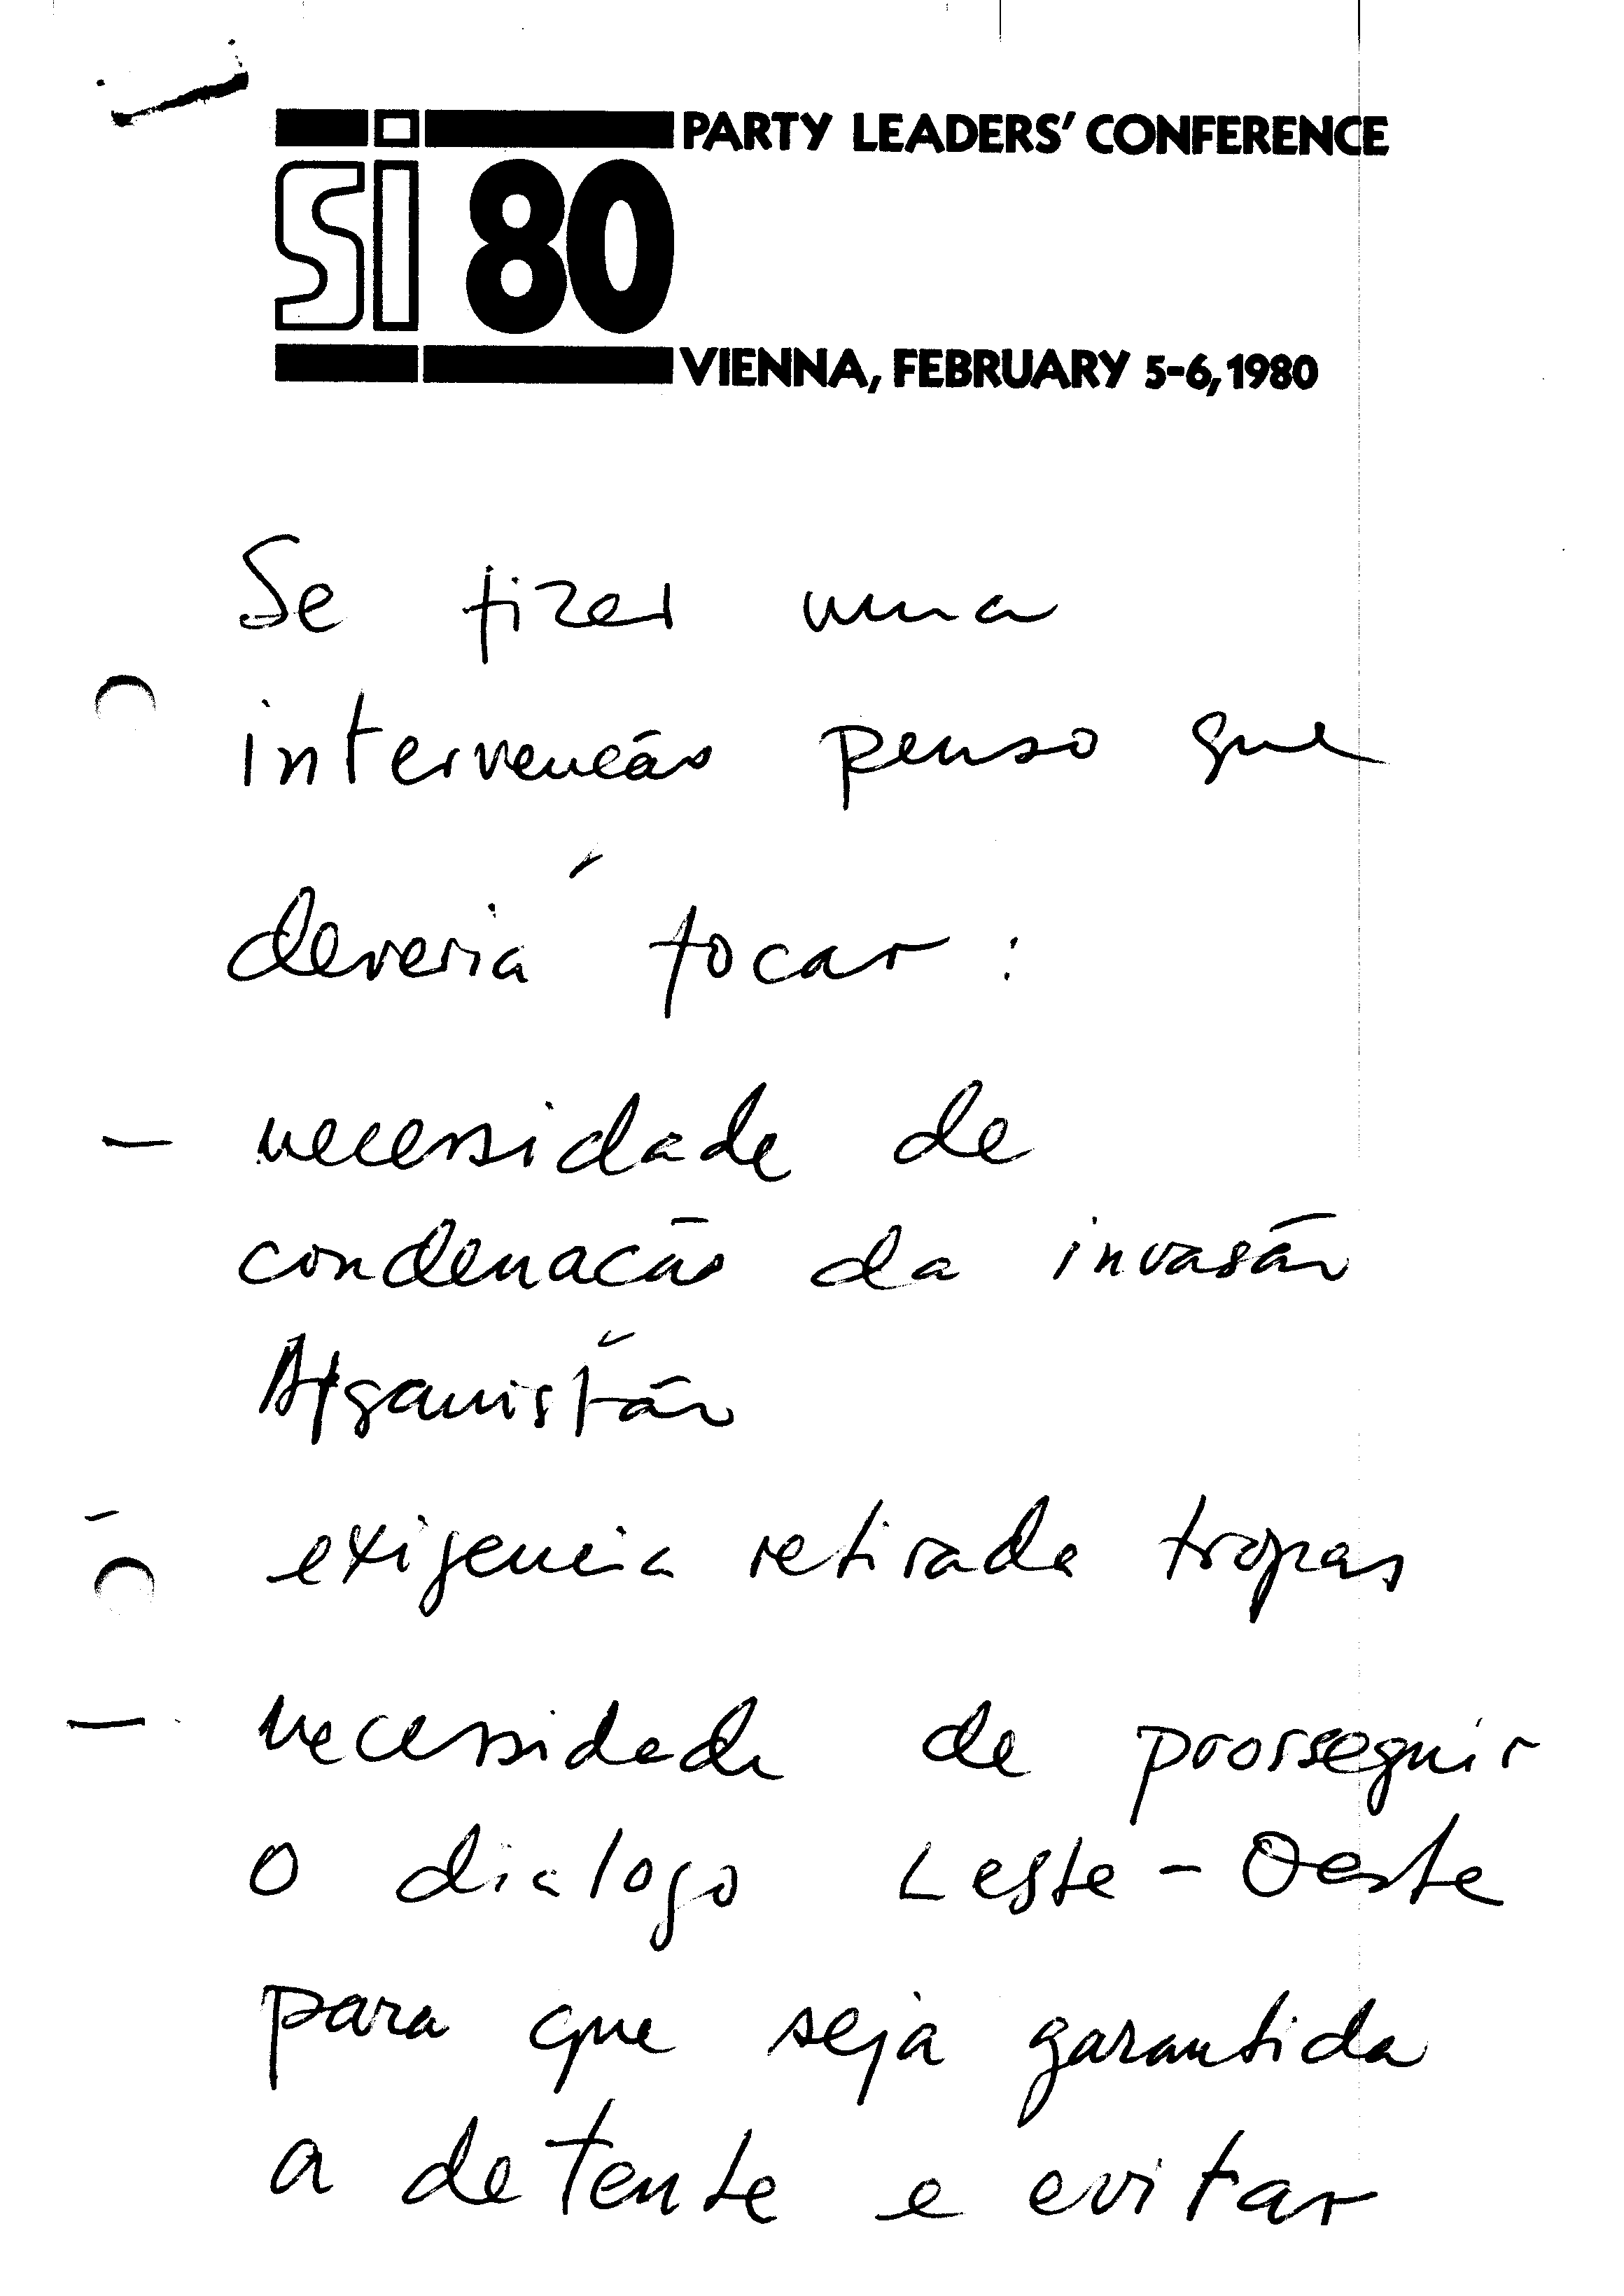 PARTY LEADERS' CONFERENCE
Si 80
VIENNA, FEBRUARY 5-6, 1980
Se fizer uma
intervencão penso que
deveria tocar :
— necessidade de
condenacão da invasão
Afganistão
- exigencia retirada tropas
— necessidade de prosseguir
o dialogo Leste - Oeste
para que seja garantida
a detente e evitar